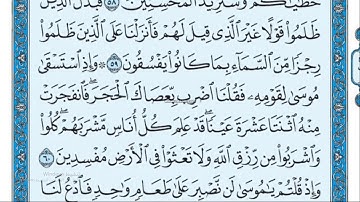 خَطَٰيَٰكُمْ وَسَنَزِيدُ ٱلْمُحْسِنِينَ ۝٥٨ فَبَدَّلَ ٱلَّذِينَ
ظَلَمُوا۟ قَوْلًا غَيْرَ ٱلَّذِى قِيلَ لَهُمْ فَأَنزَلْنَا عَلَى ٱلَّذِينَ ظَلَمُوا۟
رِجْزًا مِّنَ ٱلسَّمَآءِ بِمَا كَانُوا۟ يَفْسُقُونَ ۝٥٩ وَإِذِ ٱسْتَسْقَىٰ
مُوسَىٰ لِقَوْمِهِۦ فَقُلْنَا ٱضْرِب بِّعَصَاكَ ٱلْحَجَرَ فَٱنفَجَرَتْ
مِنْهُ ٱثْنَتَا عَشْرَةَ عَيْنًا قَدْ عَلِمَ كُلُّ أُنَاسٍ مَّشْرَبَهُمْ كُلُوا۟
وَٱشْرَبُوا۟ مِن رِّزْقِ ٱللَّهِ وَلَا تَعْثَوْا۟ فِى ٱلْأَرْضِ مُفْسِدِينَ ۝٦٠
وَإِذْ قُلْتُمْ يَٰمُوسَىٰ لَن نَّصْبِرَ عَلَىٰ طَعَامٍ وَٰحِدٍ فَٱدْعُ لَنَا